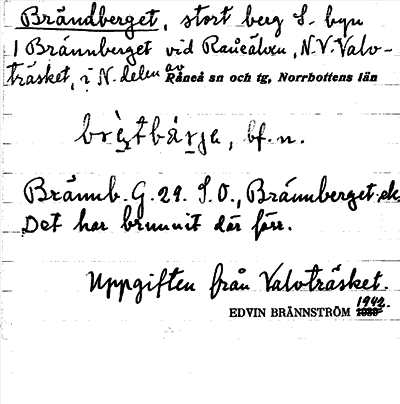 Brändberget, stort berg S. byn
Brännberget vid Råneälven, N.V. Valv-
träsket, i N. delen av Råneå sn och tg, Norrbottens län
bf. n.
Brännb. G. 29. S.O., Brännberget ek.
Det har brunnit där förr.
Uppgiften från Valvträsket.
EDVIN BRÄNNSTRÖM 1942.